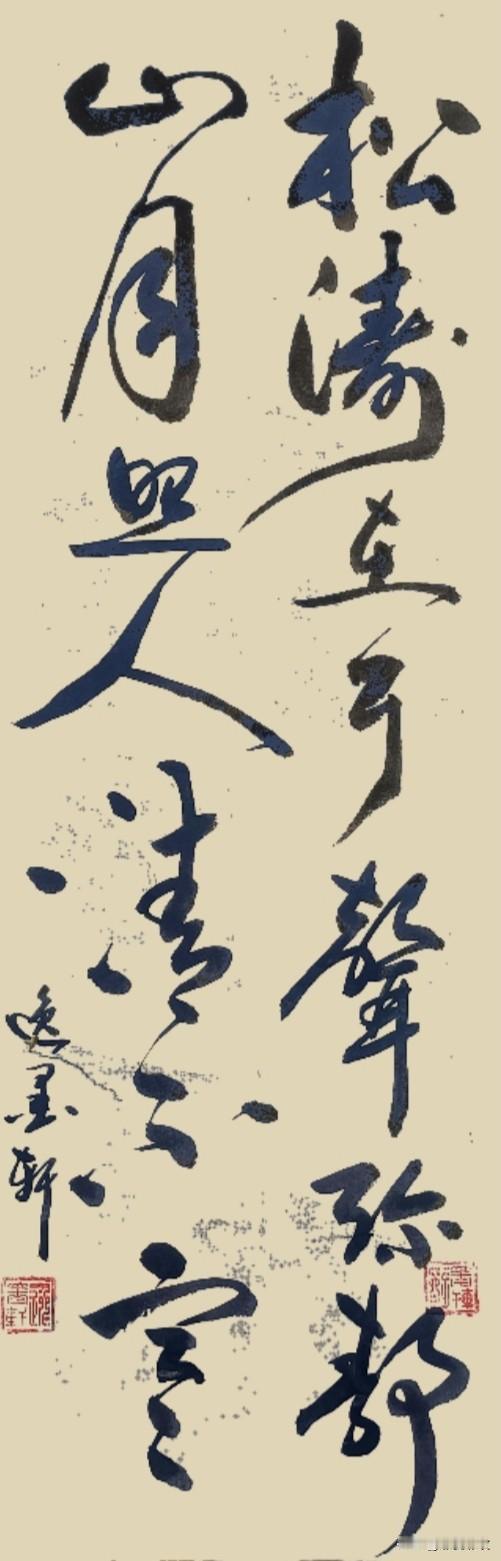 松濤在耳聲弥靜
山月照人清不寒
逸墨軒